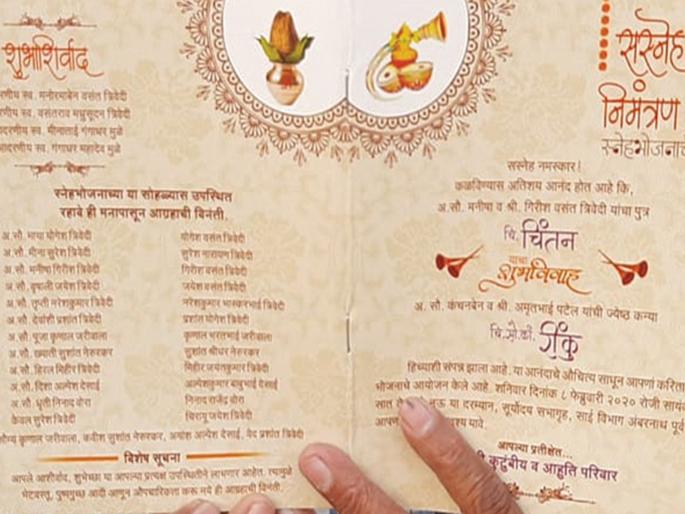 शुभाशिर्वाद
स्व. मनोरमाबेन वसंत त्रिवेदी
स्व. वसंतराव मधुसूदन त्रिवेदी
आदरणीय स्व. मीनाताई गंगाधर मुळे
आदरणीय स्व. गंगाधर महादेव मुळे
स्नेहभोजनाच्या या सोहळ्यास उपस्थित
रहावे ही मनापासून आग्रहाची विनंती.
अ.सौ. माया योगेश त्रिवेदी योगेश वसंत त्रिवेदी
अ.सौ. मीना सुरेश त्रिवेदी सुरेश नारायण त्रिवेदी
अ.सौ. मनीषा गिरीश त्रिवेदी गिरीश वसंत त्रिवेदी
अ.सौ. वृषाली जयेश त्रिवेदी जयेश वसंत त्रिवेदी
अ.सौ. तृप्ती नरेशकुमार त्रिवेदी नरेशकुमार भास्करभाई त्रिवेदी
अ.सौ. देवांशी प्रशांत त्रिवेदी प्रशांत योगेश त्रिवेदी
अ.सौ. पूजा कृणाल जरीवाला कृणाल भरतभाई जरीवाला
अ.सौ. ख्याती सुशांत नेरुरकर सुशांत श्रीधर नेरुरकर
अ.सौ. हिरल मिहीर त्रिवेदी मिहीर जयंतकुमार त्रिवेदी
अ.सौ. दिशा अल्पेश देसाई अल्पेशकुमार बाबुभाई देसाई
अ.सौ. धृती निनाद वोरा निनाद राजेंद्र वोरा
केवल सुरेश त्रिवेदी चिरायू जयेश त्रिवेदी
कृणाल जरीवाला, कवीश सुशांत नेरुरकर, अयांश अल्पेश देसाई, वेद प्रशांत त्रिवेदी
विशेष सूचना
आपले आशीर्वाद, शुभेच्छा या आपल्या प्रत्यक्ष उपस्थितीने लाभणार आहेत. त्यामुळे
भेटवस्तू, पुष्पगुच्छ आदी आणून औपचारिकता करू नये ही आग्रहाची विनंती.
सस्नेह
निमंत्रण
सस्नेह नमस्कार!
कळविण्यास अतिशय आनंद होत आहे कि,
अ.सौ. मनीषा व श्री. गिरीश वसंत त्रिवेदी यांचा पुत्र
चि. चिंतन
याचा
शुभविवाह
अ. सौ. कंचनबेन व श्री. अमृतभाई पटेल यांची ज्येष्ठ कन्या
चि.सौ.कां. रींकु
हिच्याशी संपन्न झाला आहे. या आनंदाचे औचित्य साधून आपणां करिता
भोजनाचे आयोजन केले आहे. शनिवार दिनांक ८ फेब्रुवारी २०२० रोजी सायं
सात ते या दरम्यान, सूर्योदय सभागृह, साई विभाग अंबरनाथ पूर्व
यावे.
आपल्या प्रतीक्षेत...
कुटुंबीय व आहुति परिवार